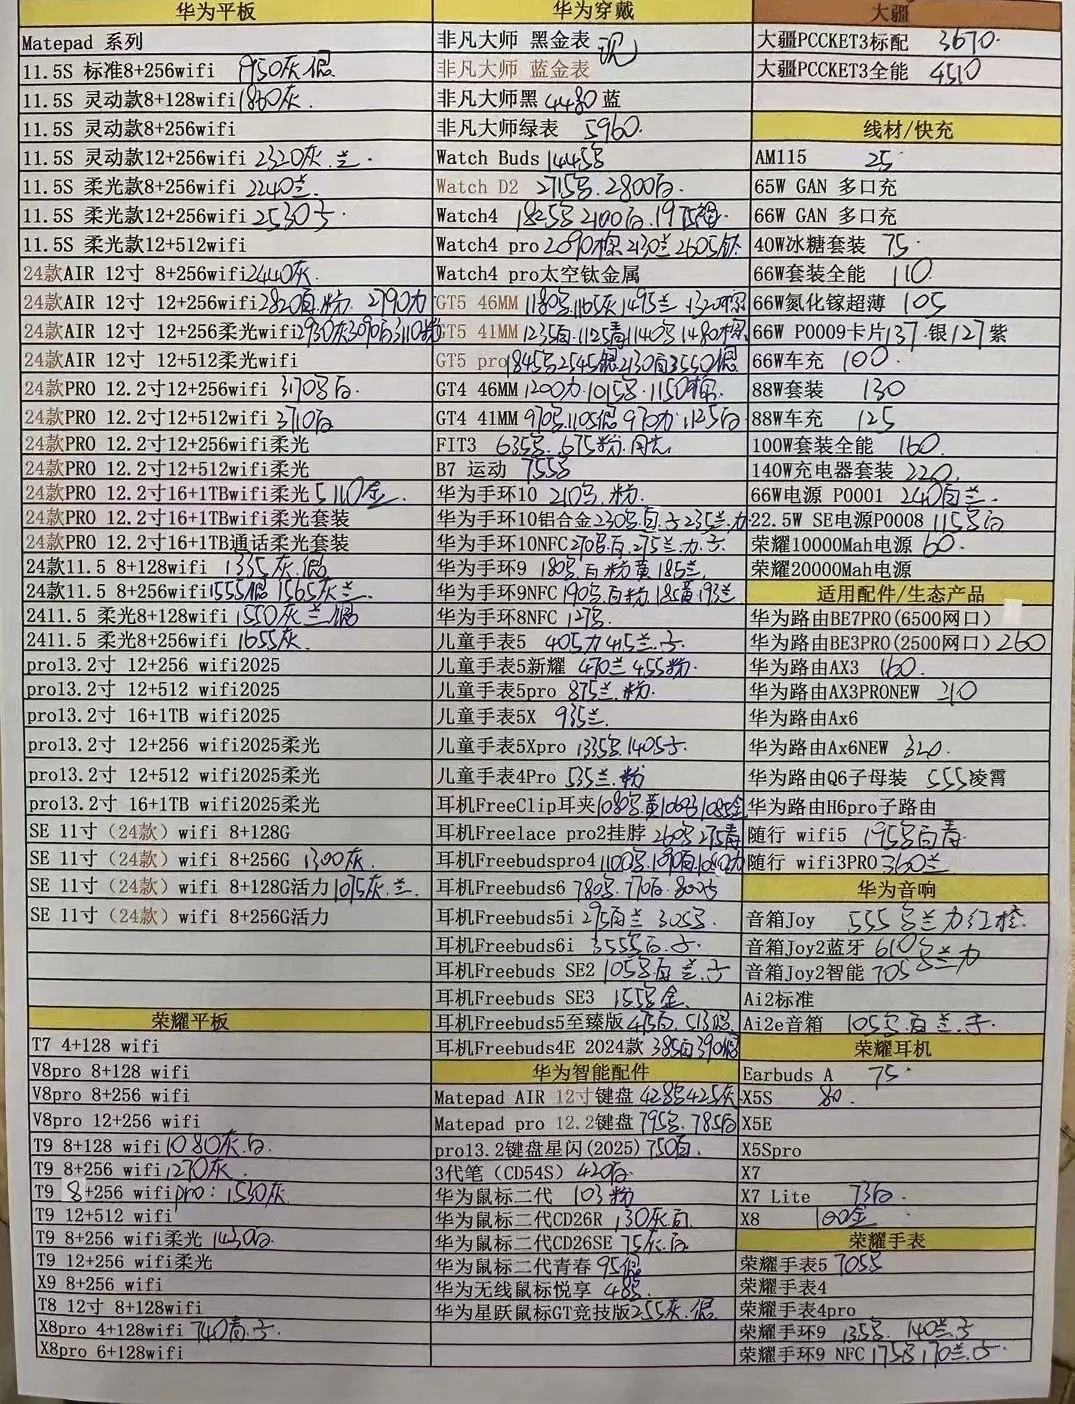 华为平板
Matepad 系列
11.5S 标准8+256wifi 1950灰.银
11.5S 灵动款8+128wifi 1860灰.
11.5S 灵动款8+256wifi
11.5S 灵动款12+256wifi 2320灰.兰.
11.5S 柔光款8+256wifi 2240兰.
11.5S 柔光款12+256wifi 2530子.
11.5S 柔光款12+512wifi
24款AIR 12寸 8+256wifi 2440灰.
24款AIR 12寸 12+256wifi 2820白.粉. 2790力
24款AIR 12寸 12+256柔光wifi 2930灰3090白3110粉
24款AIR 12寸 12+512柔光wifi
24款PRO 12.2寸12+256wifi 3170号白.
24款PRO 12.2寸12+512wifi 3710白
24款PRO 12.2寸12+256wifi柔光
24款PRO 12.2寸12+512wifi柔光
24款PRO 12.2寸16+1TBwifi柔光 5110金.
24款PRO 12.2寸16+1TBwifi柔光套装
24款PRO 12.2寸16+1TB通话柔光套装
24款11.5 8+128wifi 1335灰.银
24款11.5 8+256wifi 1555银 1565灰兰.
2411.5 柔光8+128wifi 1550灰 兰 银
2411.5 柔光8+256wifi 1655灰
pro13.2寸 12+256 wifi2025
pro13.2寸 12+512 wifi2025
pro13.2寸 16+1TB wifi2025
pro13.2寸 12+256 wifi2025柔光
pro13.2寸 12+512 wifi2025柔光
pro13.2寸 16+1TB wifi2025柔光
SE 11寸（24款）wifi 8+128G
SE 11寸（24款）wifi 8+256G 1300灰.
SE 11寸（24款）wifi 8+128G活力 1075灰.兰.
SE 11寸（24款）wifi 8+256G活力
荣耀平板
T7 4+128 wifi
V8pro 8+128 wifi
V8pro 8+256 wifi
V8pro 12+256 wifi
T9 8+128 wifi 1080灰.白.
T9 8+256 wifi 1270灰.
T9 8+256 wifi pro: 1530灰.
T9 12+512 wifi
T9 8+256 wifi柔光 1430白.
T9 12+256 wifi柔光
X9 8+256 wifi
T8 12寸 8+128wifi
X8pro 4+128wifi 740青.子.
X8pro 6+128wifi
华为穿戴
非凡大师 黑金表 现
非凡大师 蓝金表
非凡大师黑 4480 蓝
非凡大师绿表 5960.
Watch Buds 1445号
Watch D2 2715号.2800白.
Watch4 1825号2100白.1975棕.
Watch4 pro 2090棕.2130兰2605钛
Watch4 pro太空钛金属
GT5 46MM 1180号.1165灰1495兰.1320棕
GT5 41MM 1235白.1125青1140号1480棕
GT5 pro 1845号2545银2130白3550银
GT4 46MM 1200力.1015号.1150棕.
GT4 41MM 970号.1105银970力.1125白
FIT3 635号.675粉.
B7 运动 755号
华为手环10 210号.粉.
华为手环10铝合金230号.白.子235兰.力
华为手环10NFC 270号.白.275兰.力.子.
华为手环9 180号.白粉黄185兰.
华为手环9NFC 190号.白粉.185黄193兰
华为手环8NFC 127号.
儿童手表5 405力415兰.子.
儿童手表5新耀 470兰 455粉.
儿童手表5pro 875兰.粉.
儿童手表5X 935兰.
儿童手表5Xpro 1335号.1405子.
儿童手表4Pro 535兰.粉
耳机FreeClip耳夹1080号.黄1060号1085金
耳机Freelace pro2挂脖 260号275青
耳机Freebudspro4 1100号.1090白.1060力
耳机Freebuds6 780号.770白.800子
耳机Freebuds5i 295白兰 305号.
耳机Freebuds6i 355号白.子.
耳机Freebuds SE2 105号白 兰.子
耳机Freebuds SE3 155号金.
耳机Freebuds5至臻版 475白.513银
耳机Freebuds4E 2024款 385白390银
华为智能配件
Matepad AIR 12寸键盘 428号425灰
Matepad pro 12.2键盘 795号.785白
pro13.2键盘星闪(2025) 750白.
3代笔（CD54S）420白.
华为鼠标二代 103粉
华为鼠标二代CD26R 130灰白
华为鼠标二代CD26SE 75灰.白
华为鼠标二代青春 95银
华为无线鼠标悦享 48号.
华为星跃鼠标GT竞技版255灰.银.
大疆
大疆PCCKET3标配 3670.
大疆PCCKET3全能 4510
线材/快充
AM115 25
65W GAN 多口充
66W GAN 多口充
40W冰糖套装 75.
66W套装全能 110
66W氮化镓超薄 105
66W P0009卡片137.银127紫
66W车充 100.
88W套装 130
88W车充 125
100W套装全能 160.
140W充电器套装 220.
66W电源 P0001 240白兰.
22.5W SE电源P0008 115号白
荣耀10000Mah电源 60.
荣耀20000Mah电源
适用配件/生态产品
华为路由BE7PRO(6500网口)
华为路由BE3PRO(2500网口) 260
华为路由AX3 160.
华为路由AX3PRONEW 210
华为路由Ax6
华为路由Ax6NEW 320.
华为路由Q6子母装 555凌霄
华为路由H6pro子路由
随行 wifi5 195号白青.
随行 wifi3PRO 360兰
华为音响
音箱Joy 555号兰力红橙.
音箱Joy2蓝牙 610号兰力
音箱Joy2智能 705
Ai2标准
Ai2e音箱 105号.白兰.子.
荣耀耳机
Earbuds A 75.
X5S 80.
X5E
X5Spro
X7
X7 Lite 73白.
X8 100金
荣耀手表
荣耀手表5 705号
荣耀手表4
荣耀手表4pro
荣耀手环9 135号. 140兰.子
荣耀手环9 NFC 175号170兰.子.